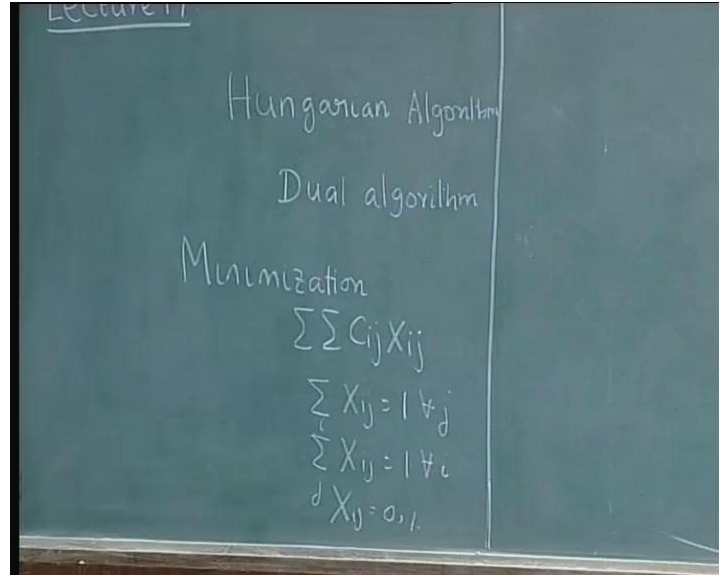 Lecture 17
Hungarian Algorithm
Dual algorithm
Minimization
∑∑ Cij Xij
∑i Xij = 1 ∀j
∑j Xij = 1 ∀i
Xij = 0,1